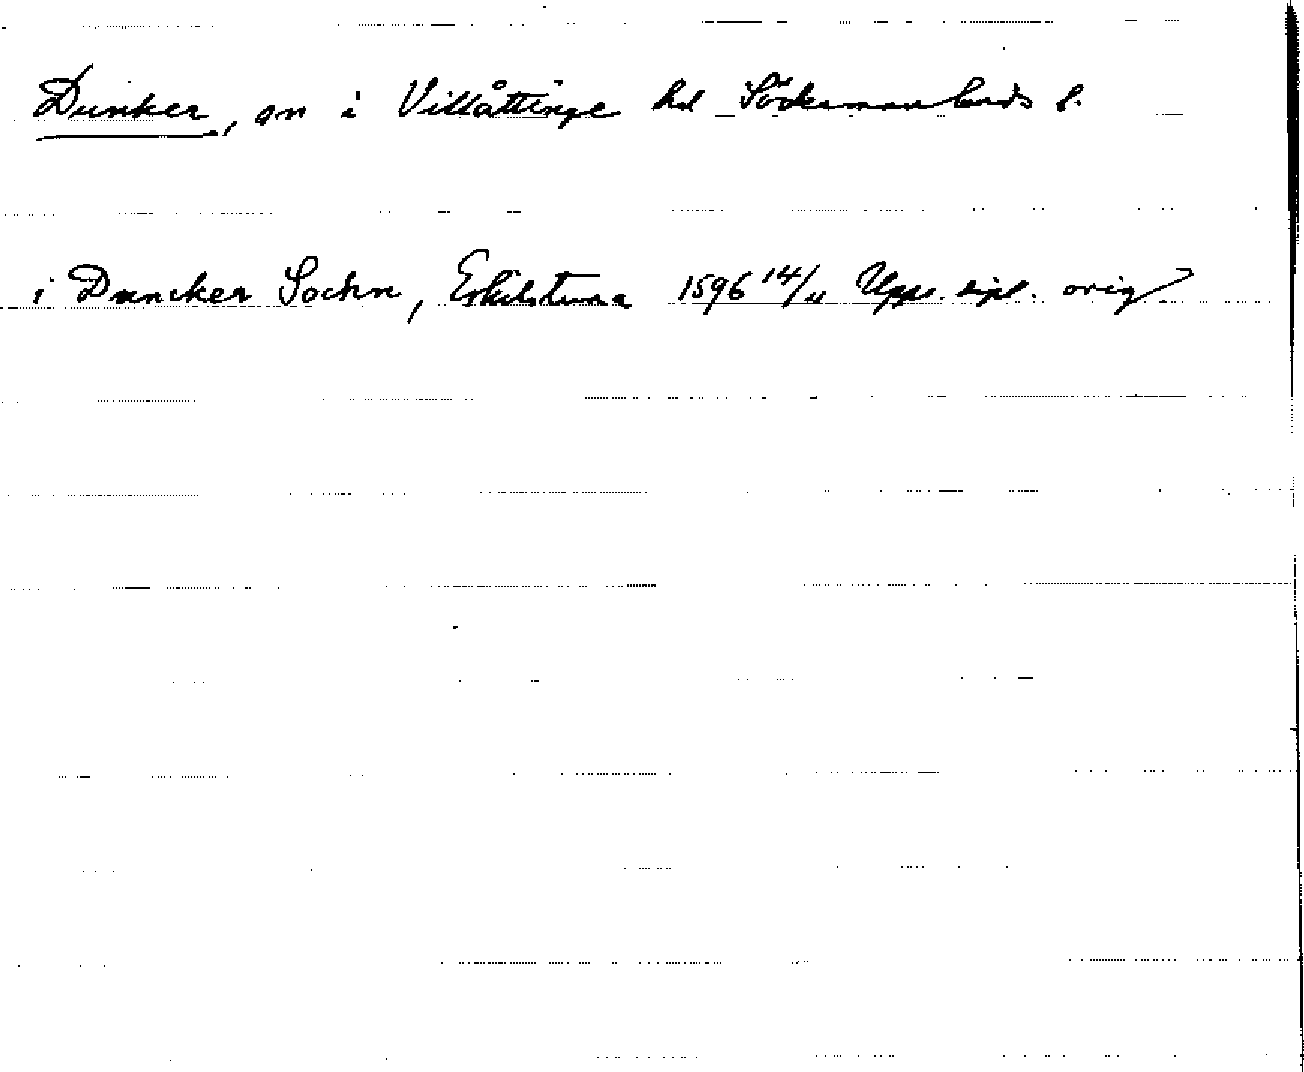 Dunker, sn i Villåttinge hd Södermanlands l.
i Duncker Sochn, Eskilstuna 1596 14/11 Upps. dipl. orig